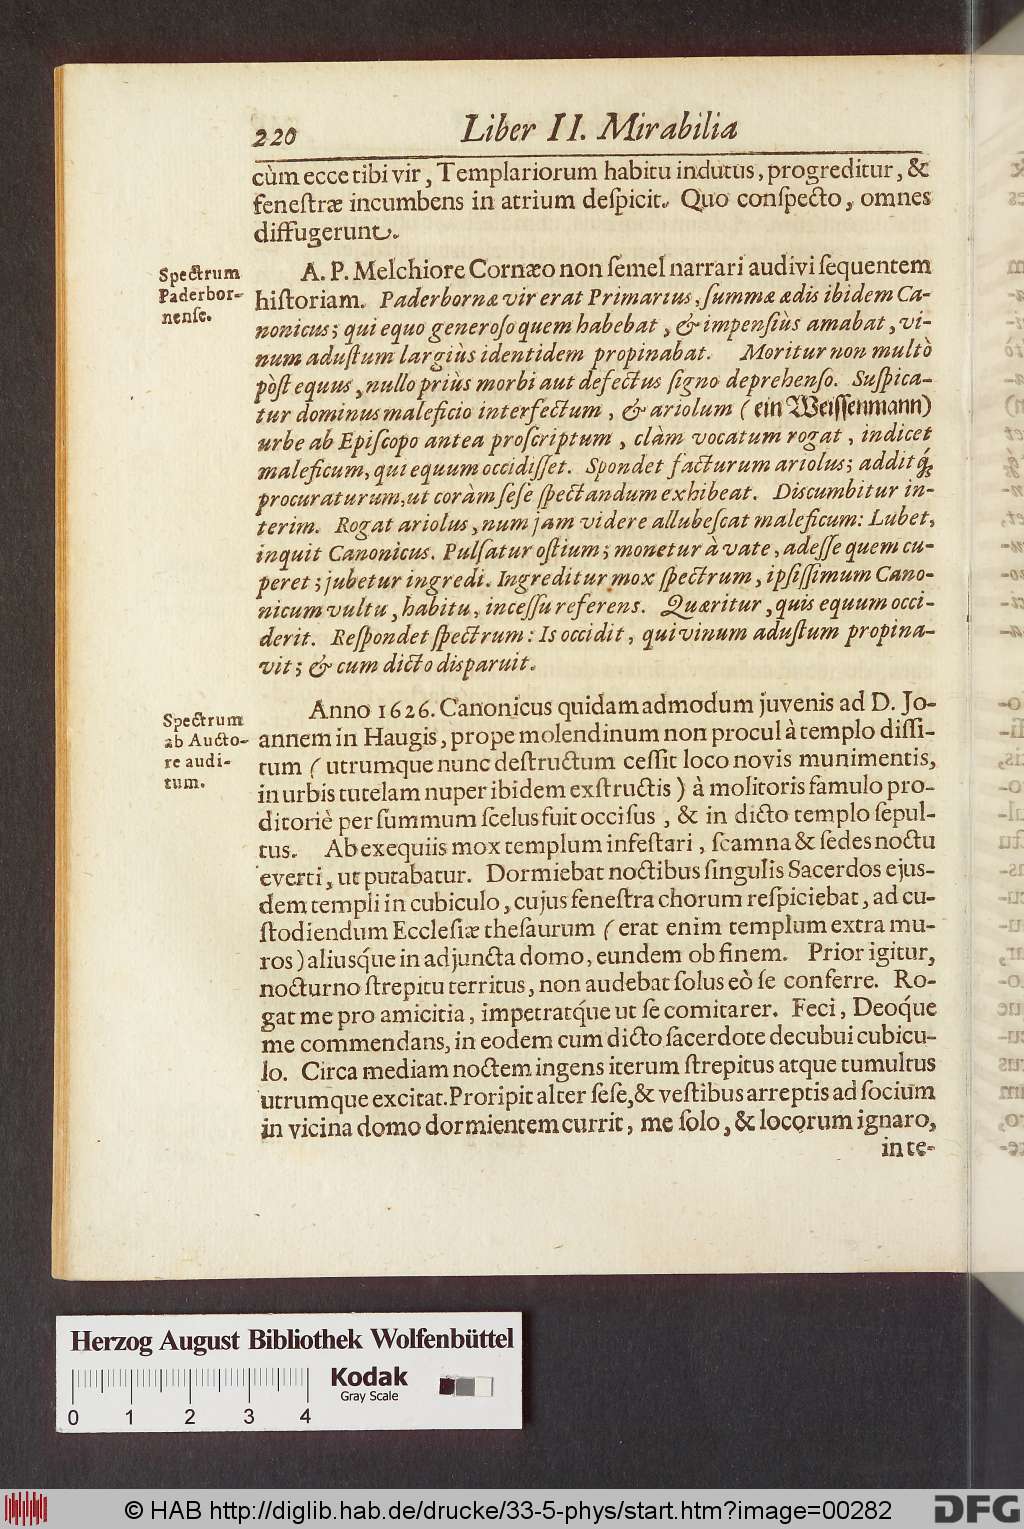 220 Liber II. Mirabilia
cùm ecce tibi vir, Templariorum habitu indutus, progreditur, &
feneſtræ incumbens in atrium deſpicit. Quo conſpecto, omnes
diffugerunt.
Spectrum
Paderbor-
nenſe.
A. P. Melchiore Cornæo non ſemel narrari audivi ſequentem
hiſtoriam. Paderbornæ vir erat Primarius, ſummæ ædis ibidem Ca-
nonicus; qui equo generoſo quem habebat, & impenſiùs amabat, vi-
num aduſtum largiùs identidem propinabat. Moritur non multò
pòſt equus, nullo priùs morbi aut defectus ſigno deprehenſo. Suſpica-
tur dominus maleficio interfectum, & ariolum (ein Weiſſenmann)
urbe ab Epiſcopo antea proſcriptum, clàm vocatum rogat, indicet
maleficum, qui equum occidiſſet. Spondet facturum ariolus; addit q́;
procuraturum, ut coràm ſeſe ſpectandum exhibeat. Diſcumbitur in-
terim. Rogat ariolus, num jam videre allubeſcat maleficum: Lubet,
inquit Canonicus. Pulſatur oſtium; monetur à vate, adeſſe quem cu-
peret; jubetur ingredi. Ingreditur mox ſpectrum, ipſiſſimum Cano-
nicum vultu, habitu, inceſſu referens. Quæritur, quis equum occi-
derit. Reſpondet ſpectrum: Is occidit, qui vinum aduſtum propina-
vit; & cum dicto disparuit.
Spectrum
ab Aucto-
re audi-
tum.
Anno 1626. Canonicus quidam admodum juvenis ad D. Jo-
annem in Haugis, prope molendinum non procul à templo diſſi-
tum (utrumque nunc deſtructum ceſſit loco novis munimentis,
in urbis tutelam nuper ibidem exſtructis) à molitoris famulo pro-
ditoriè per ſummum ſcelus fuit occiſus, & in dicto templo ſepul-
tus. Ab exequiis mox templum infeſtari, ſcamna & ſedes noctu
everti, ut putabatur. Dormiebat noctibus ſingulis Sacerdos ejus-
dem templi in cubiculo, cujus feneſtra chorum reſpiciebat, ad cu-
ſtodiendum Eccleſiæ theſaurum (erat enim templum extra mu-
ros) aliusq́ue in adjuncta domo, eundem ob finem. Prior igitur,
nocturno ſtrepitu territus, non audebat ſolus eò ſe conferre. Ro-
gat me pro amicitia, impetratq́ue ut ſe comitarer. Feci, Deoq́ue
me commendans, in eodem cum dicto ſacerdote decubui cubicu-
lo. Circa mediam noctem ingens iterum ſtrepitus atque tumultus
utrumque excitat. Proripit alter ſeſe, & veſtibus arreptis ad ſocium
in vicina domo dormientem currit, me ſolo, & locorum ignaro,
in te-
Herzog August Bibliothek Wolfenbüttel
Kodak
Gray Scale
0 1 2 3 4
© HAB http://diglib.hab.de/drucke/33-5-phys/start.htm?image=00282
DFG